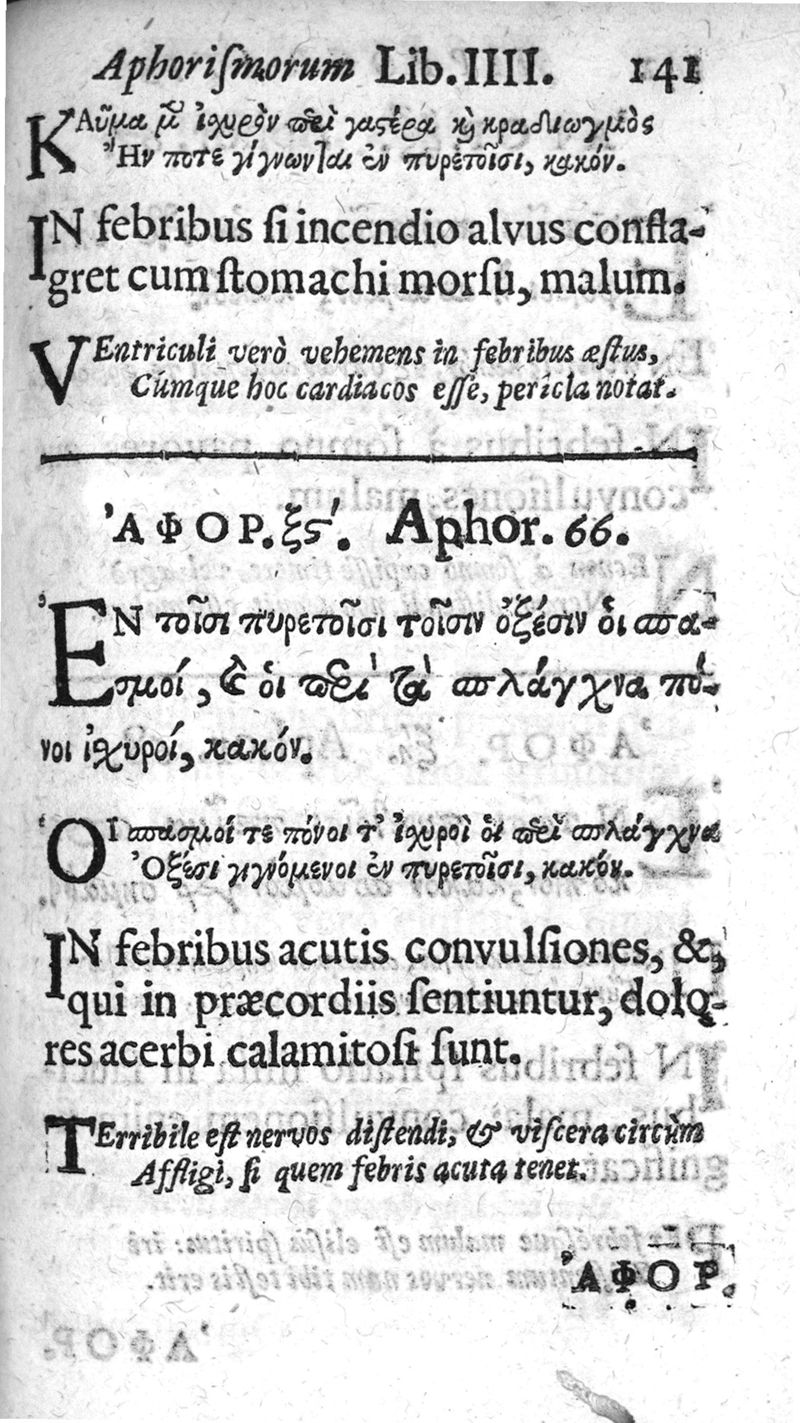 Aphoriſmorum Lib. IIII. 141
ΚΑῦμα μ̃ ἰχυρὸν περὶ γαϛέρα κὶ κραδιωγμὸς
Ἢν ποτε γίγνωνται ἐν πυρετοῖσι, κακόν.
IN febribus ſi incendio alvus confla-
gret cum ſtomachi morſu, malum.
VEntriculi verò vehemens in febribus æſtus,
Cúmque hoc cardiacos eſſe, pericla notat.
ἈΦΟΡ. ξϛʹ. Aphor. 66.
ἘΝ τοῖσι πυρετοῖσι τοῖσιν ὀξέσιν ὁι σπα-
σμοί, & ὁι περὶ τὰ σπλάγχνα πό-
νοι ἰχυροί, κακόν.
ὉΙ σπασμοί τε πόνοι τ' ἰχυροὶ ὁι περὶ σπλάγχνα
Ὀξέσι γιγνόμενοι ἐν πυρετοῖσι, κακόν.
IN febribus acutis convulſiones, &,
qui in præcordiis ſentiuntur, dolo-
res acerbi calamitoſi ſunt.
TErribile eſt nervos diſtendi, & viſcera circùm
Affligi, ſi quem febris acuta tenet.
ἈΦΟΡ.